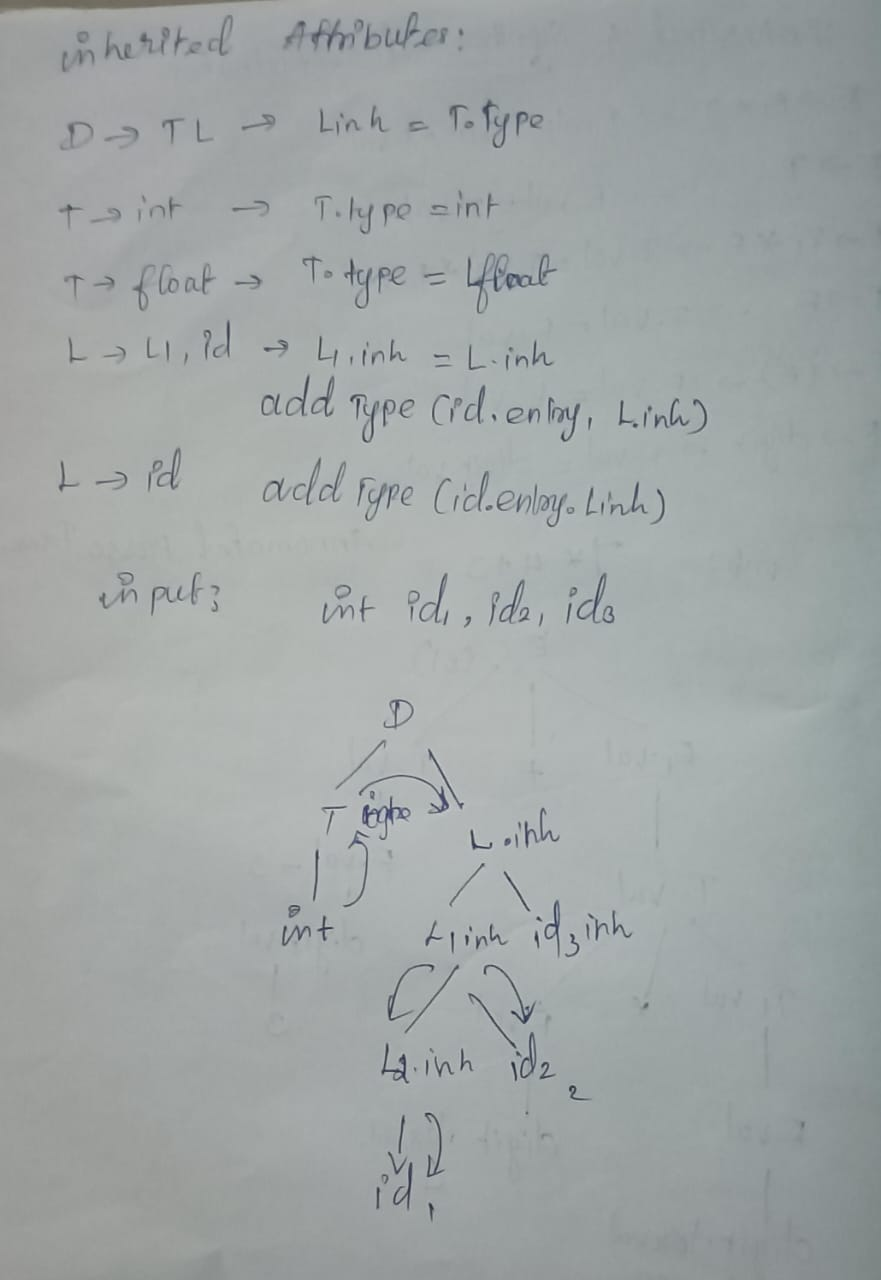 inherited Attributes:
D → TL → Linh = T.Type
T → int → T.type = int
T → float → T.type = float
L → L1, id → L1.inh = L.inh
add Type (id.entry, L.inh)
L → id add Type (id.entry. Linh)
input; int id1, id2, id3
D
T
L.inh
int L1inh id3 inh
L2.inh id2 2
id1